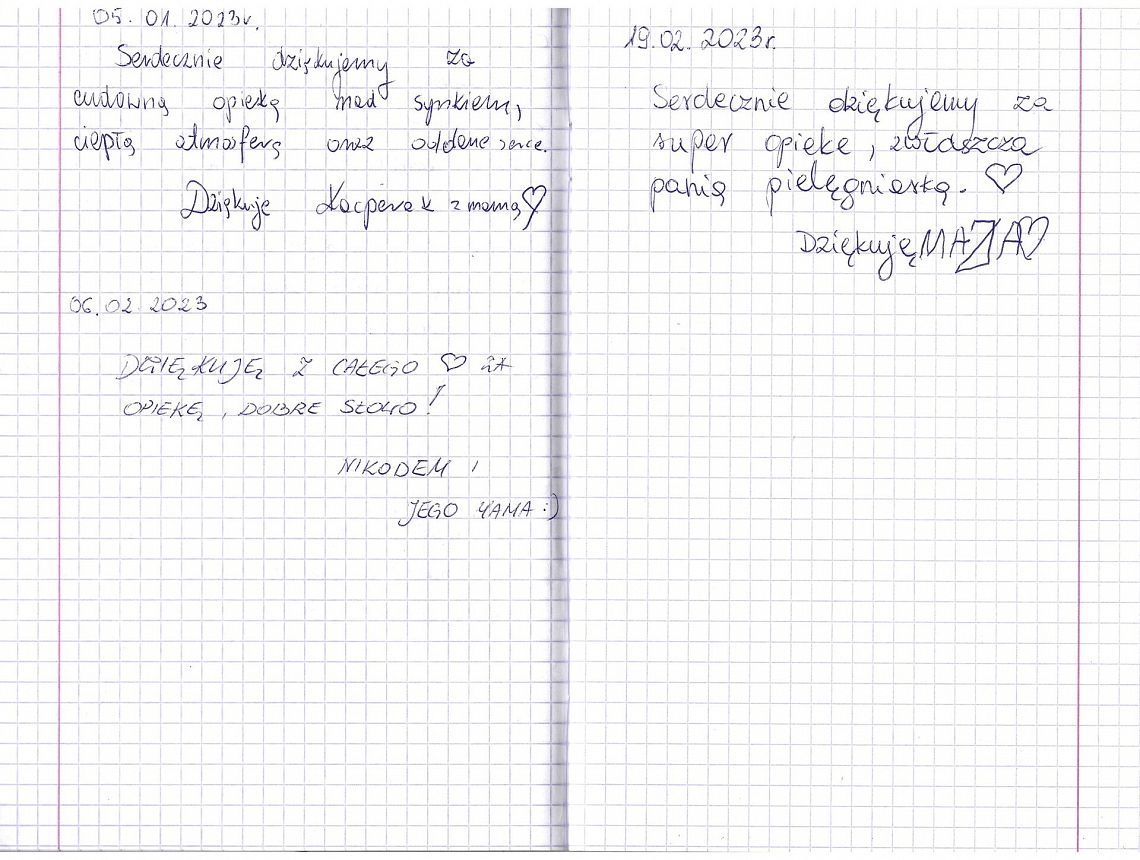 05.01.2023r.
Serdecznie dziękujemy za
cudowną opieką nad synkiem,
ciepłą atmosferą oraz oddane serce.
Dziękuje Kacperek z mamą ♡
06.02.2023
DZIĘKUJĘ Z CAŁEGO ♡ ZA
OPIEKĘ, DOBRE SŁOWO!
NIKODEM I
JEGO MAMA :)
19.02.2023r.
Serdecznie dziękujemy za
super opiekę, zwłaszcza
panią pielęgniarką. ♡
Dziękuję MAJA ♡